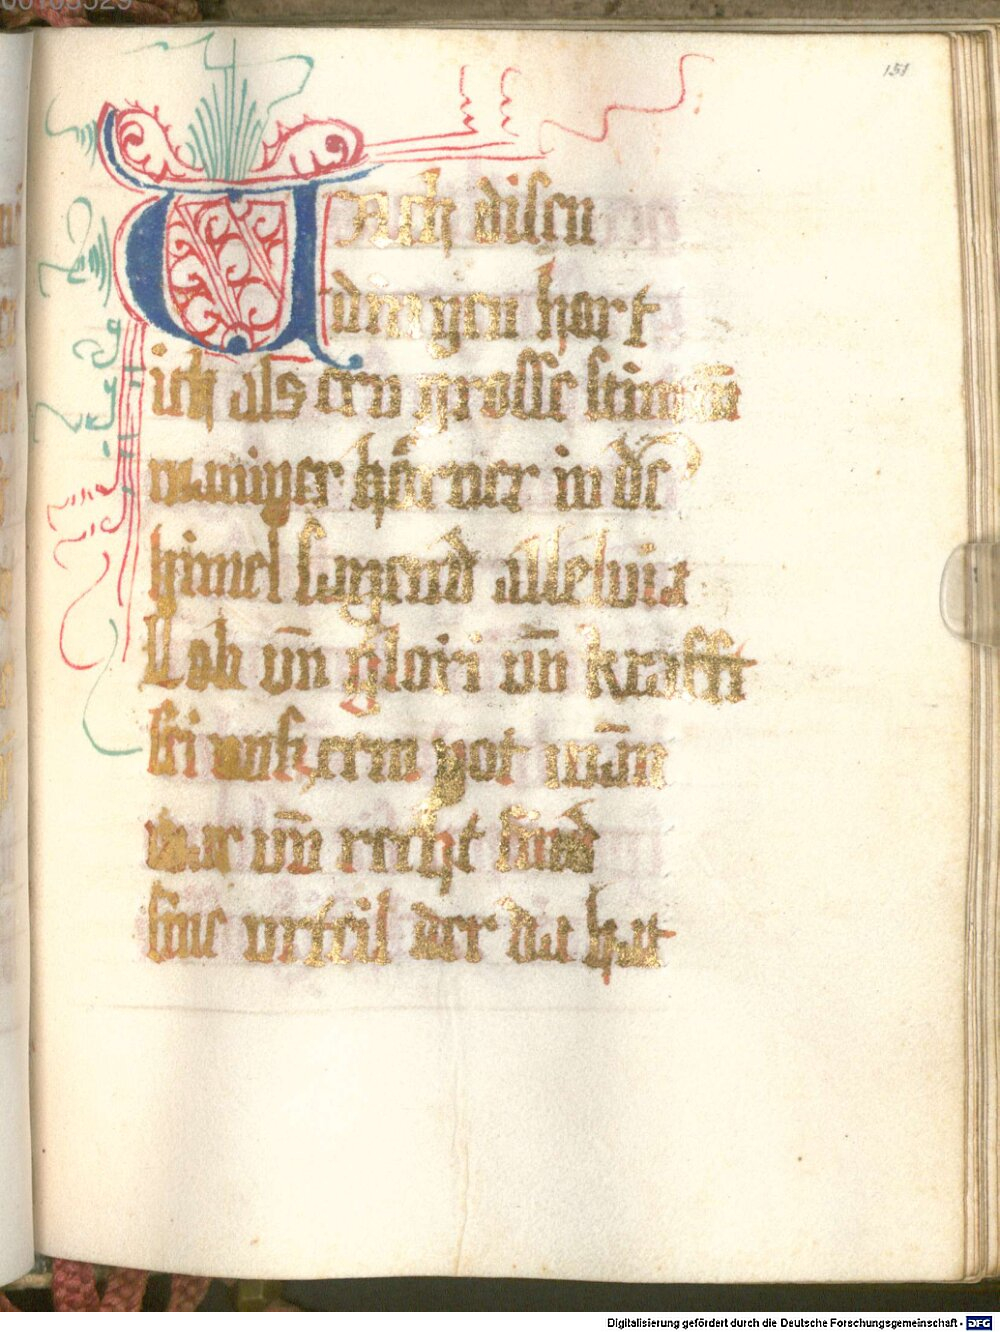 151
Nach disen
dingen hort
ich als ein grosse stim̄
maniger hörner in dē
himel sagend alleluia
Lob vn̄ glori vn̄ krafft
sei unserm got wān
war vn̄ recht sind
sine urteil der da hat
Digitalisierung gefördert durch die Deutsche Forschungsgemeinschaft - DFG